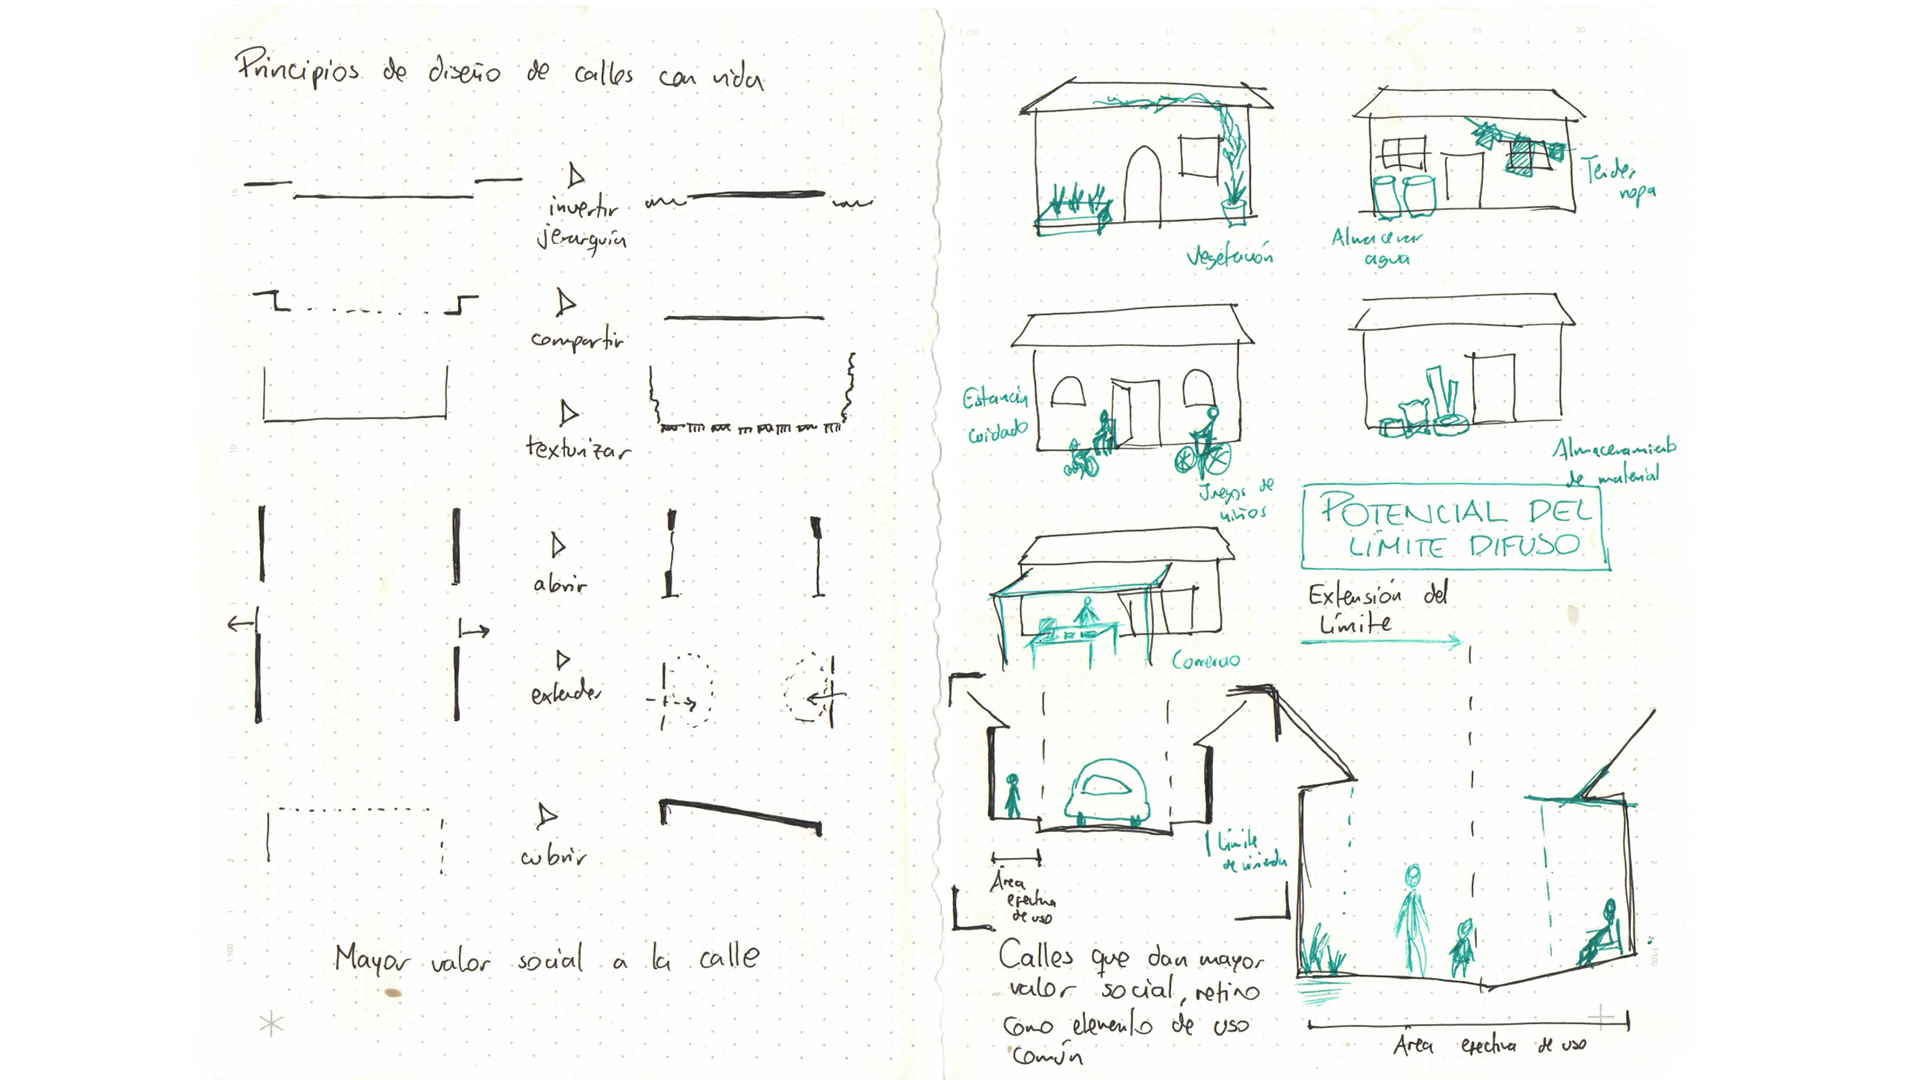 Principios de diseño de calles con vida
invertir
jerarquía
compartir
texturizar
abrir
extender
cubrir
Mayor valor social a la calle
Vegetación
Tender
ropa
Almacenar
agua
Estancia
Cuidado
Juegos de
niños
Almacenamiento
de material
POTENCIAL DEL
LÍMITE DIFUSO
Extensión del
Límite
Comercio
Límite
de vivienda
Área
efectiva
de uso
Calles que dan mayor
valor social, retiro
como elemento de uso
común
Área efectiva de uso